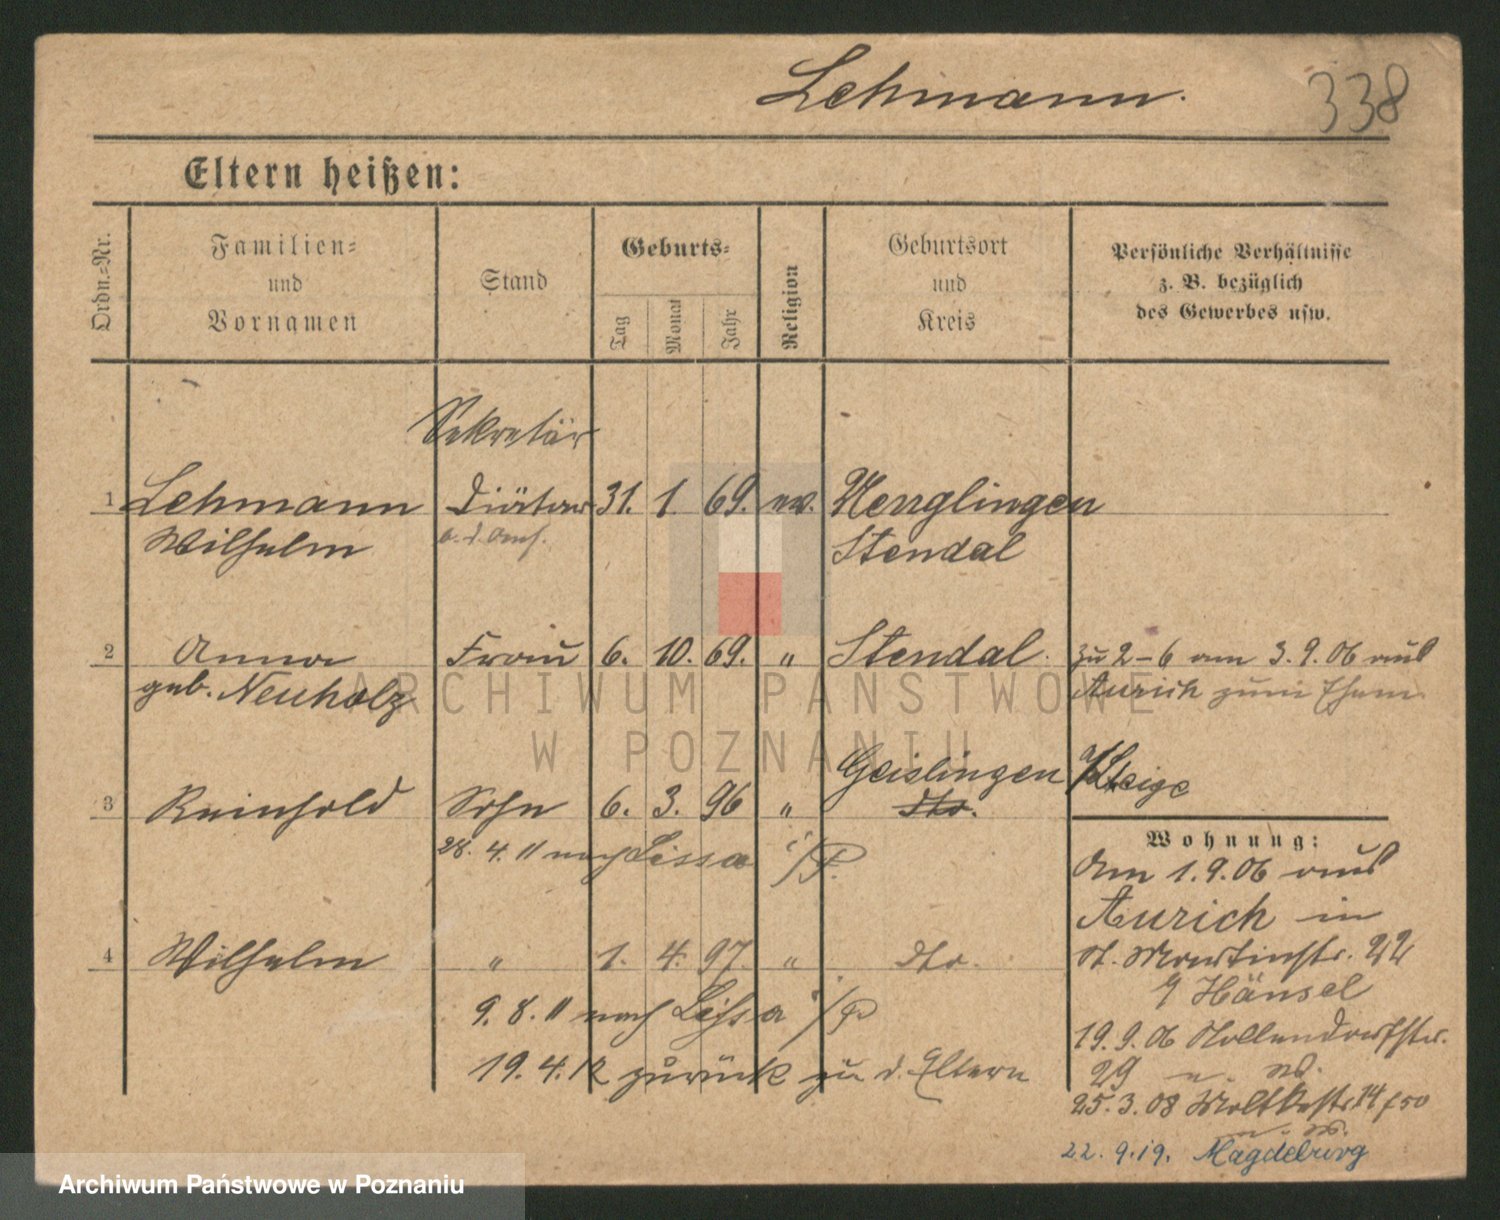 Lehmann.
338
Eltern heißen:
Ordn.-Nr.
Familien-
und
Vornamen
Stand
Geburts-
Tag
Monat
Jahr
Religion
Geburtsort
und
Kreis
Persönliche Verhältnisse
z. B. bezüglich
des Gewerbes usw.
Sekretär
1 Lehmann Diätar 31. 1. 69. ev.
Wilhelm Stendal
2 Anna Frau 6. 10. 69. " Stendal. zu 2-6 am 3.9.06 aus
geb. Neuholz Aurich zum
Geislingen a/Steige
3 Reinhold Sohn 6. 3. 96 " dto.
28. 4. 11 nach Lissa i/P.
Wohnung:
Am 1.9.06 aus
Aurich in
4 Wilhelm " 1. 4. 97. " dto.
St. Martinstr. 22
9. 8. 11 nach Lissa i/P
b/ Hänsel
19. 9. 06 Nollendorfstr.
29
19. 4. 12 zurück zu d. Eltern
25. 3. 08 Moltkestr. 14
22. 9. 19. Magdeburg
ARCHIWUM PAŃSTWOWE
W POZNANIU
Archiwum Państwowe w Poznaniu